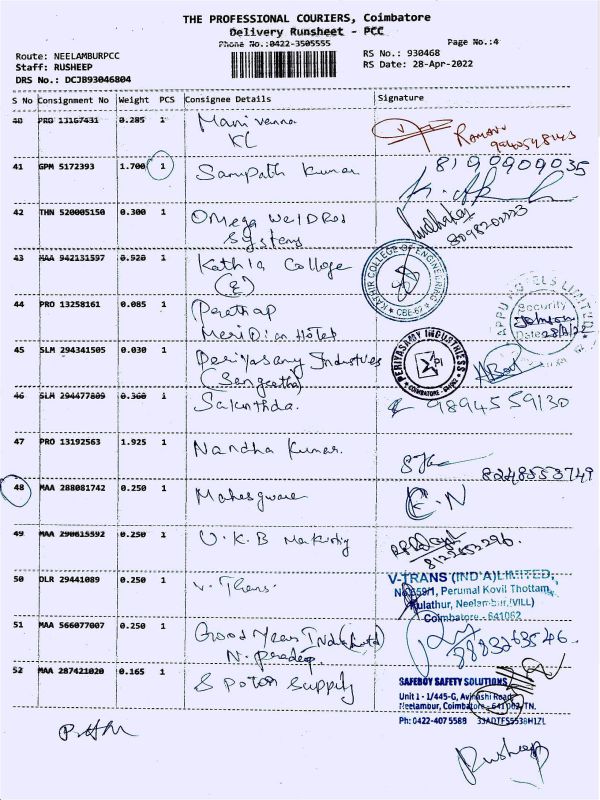 THE PROFESSIONAL COURIERS, Coimbatore
Delivery Runsheet - PCC
Phone No.:0422-3505555
Page No.:4
Route: NEELAMBURPCC
Staff: RUSHEEP
DRS No.: DCJB93046804
RS No.: 930468
RS Date: 28-Apr-2022
S No Consignment No Weight PCS Consignee Details Signature
40 PRO 13167431 0.285 1 Mani
KL
9940548143
41 GPM 5172393 1.700 1 Sampath Kumar 8190909035
42 THN 520005150 0.300 1 Omega Weldros
Systems
8098202223
43 MAA 942131597 0.920 1 Kathir College
(E)
KATHIR COLLEGE OF ENGINEERING
* CBE-62 *
44 PRO 13258161 0.085 1 Prathap
Meridian Hotel
APPU HOTELS LIMITED
Security
Johnson
Date 28/4/22
45 SLM 294341505 0.030 1 Periyasamy Industries
(Sangeetha)
PERIYASAMY INDUSTRIESS
PI
COIMBATORE
46 SLM 294477809 0.360 1 9894559130
47 PRO 13192563 1.925 1 Nandha Kumar. 8248553749
48 MAA 288081742 0.250 1 Maheswari K.N
49 MAA 290615592 0.250 1 U.K.B
8125452296.
50 DLR 29441089 0.250 1 V. Trans.
V-TRANS (INDIA) LIMITED,
No.659/1, Perumal Kovil Thottam,
Kulathur, Neelambur,(VILL)
Coimbatore - 641062
51 MAA 566077007 0.250 1 Good Year India (Ltd)
N. Pradeep. 8883263546.
52 MAA 287421020 0.165 1 Supply
SAFEBOY SAFETY SOLUTIONS
Unit 1 - 1/445-G, Avinashi Road
Neelambur, Coimbatore - 641 062, TN.
Ph: 0422-407 5589 33ADTFS5538H1ZL
Rusheep